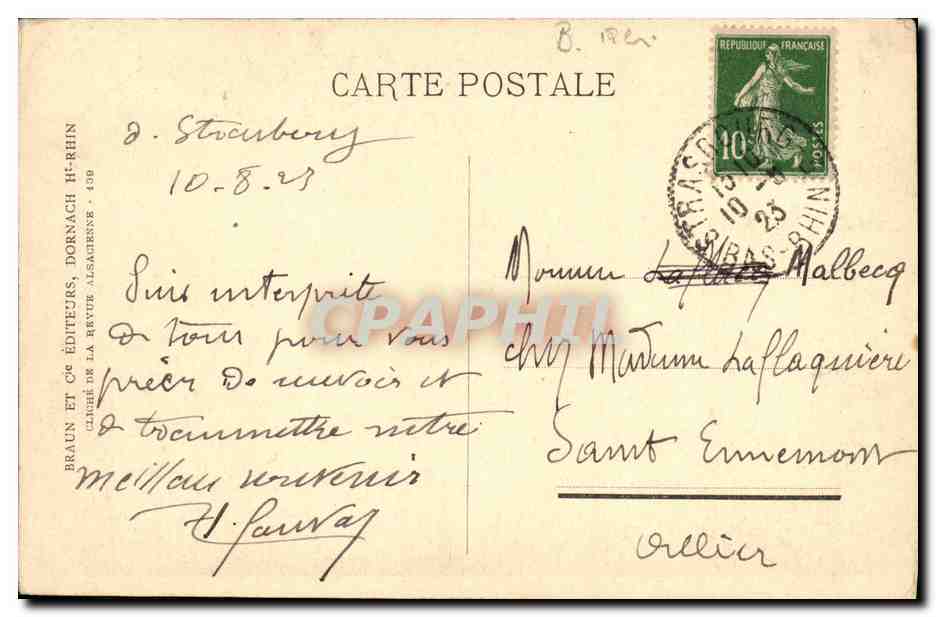 B.
CARTE POSTALE
RÉPUBLIQUE FRANÇAISE
10
POSTES
STRASBOURG
10
23
BAS-RHIN
BRAUN ET Cie ÉDITEURS, DORNACH Ht-RHIN
CLICHÉ DE LA REVUE ALSACIENNE - 139
d. Strasbourg
10-8-23
Suis interprète
de tous pour vous
prier de recevoir et
de transmettre notre
meilleur souvenir
Monsieur Malbecq
chez Madame Laflaquière
Saint Ennemont
Allier
CPAPHIL